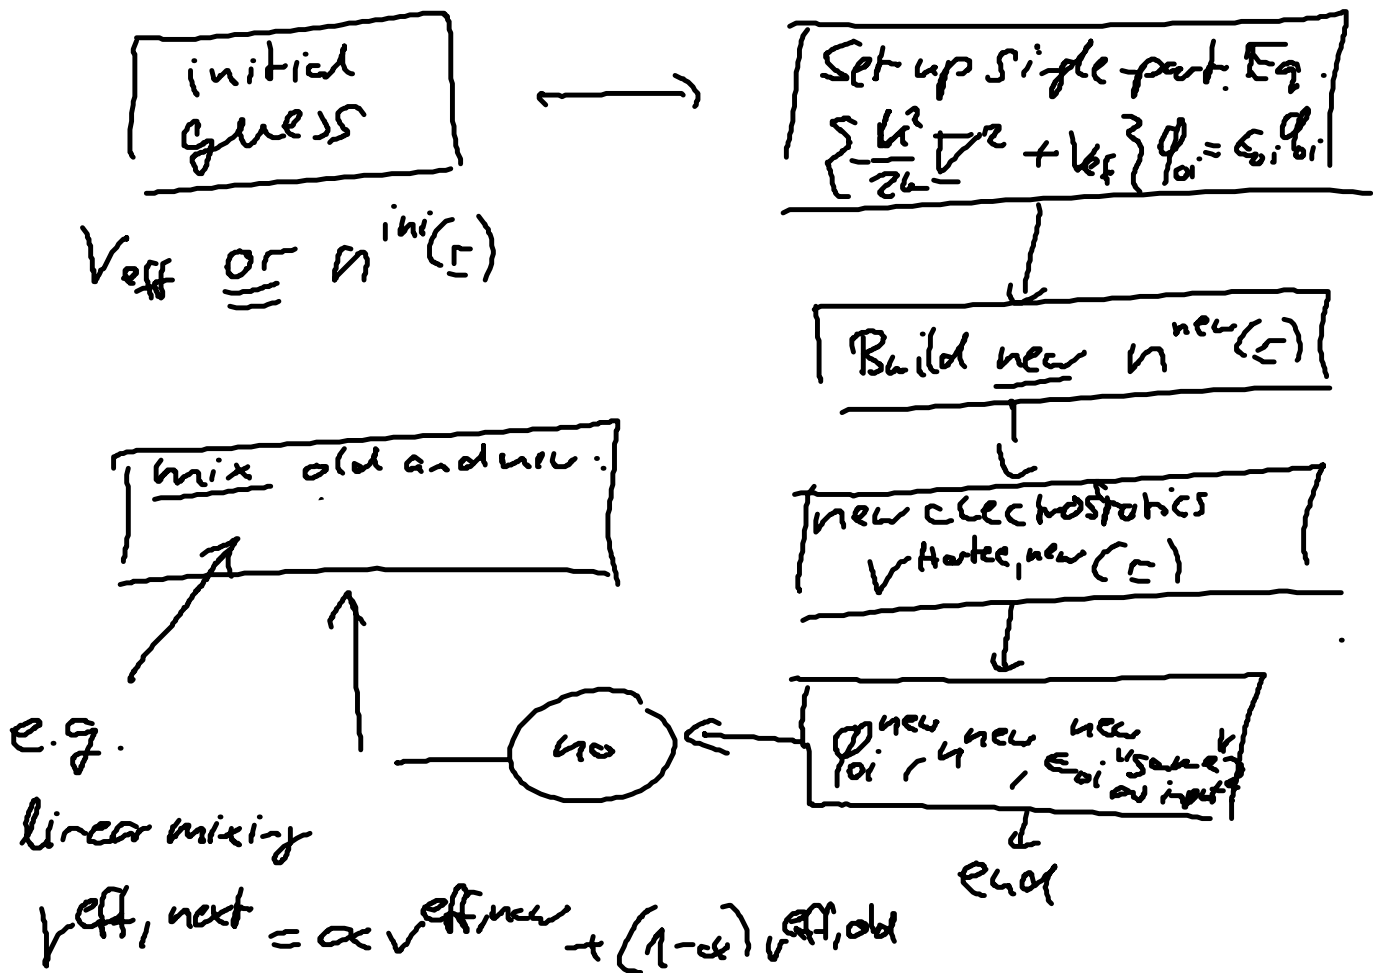 initial
guess
V_eff or n^ini(r)
Set up single part. Eq.
{-ħ²/2m ∇² + V_ef} φ_oi = ε_oi φ_oi
Build new n^new(r)
new electrostatics
v^Hartee,new(r)
φ_oi^new, n^new, ε_oi^new "same"
as input?
end
no
mix old and new.
e.g.
linear mixing
v^eff,next = α v^eff,new + (1-α) v^eff,old